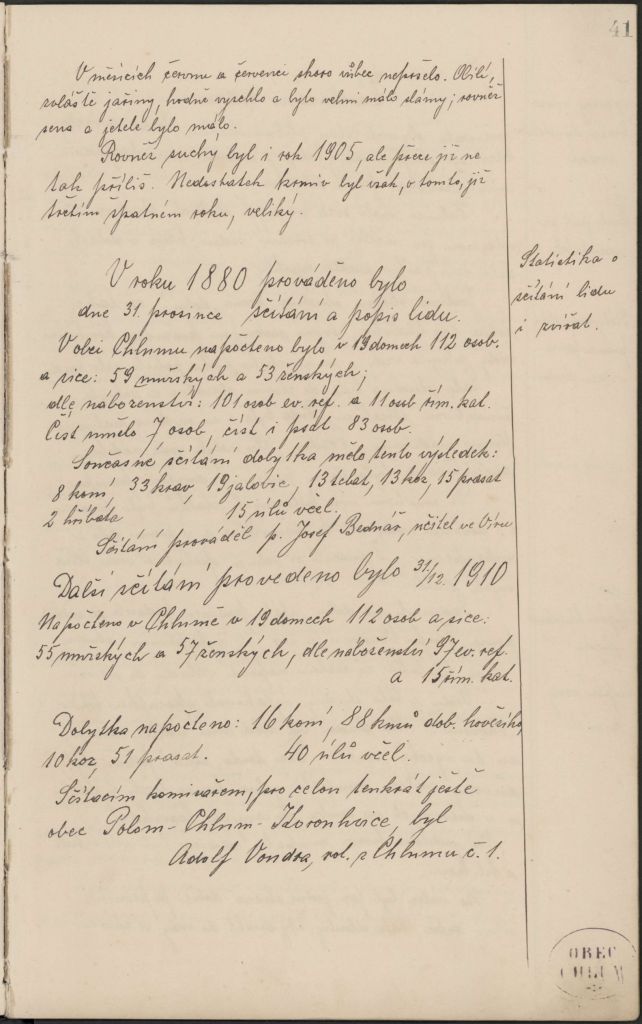 41
V měsících červnu a červenci skoro vůbec nepršelo. Obilí,
zvláště jařiny, hodně vyschlo a bylo velmi málo slámy; rovněž
sena a jetele bylo málo.
Rovněž suchý byl i rok 1905, ale přece již ne
tak příliš. Nedostatek krmiv byl však, v tomto, již
třetím špatném roku, veliký.
Statistika o
sčítání lidu
i zvířat.
V roku 1880 prováděno bylo
dne 31. prosince sčítání a popis lidu.
V obci Chlumu napočteno bylo v 19 domech 112 osob.
a sice: 59 mužských a 53 ženských;
dle náboženství: 101 osob ev. ref. a 11 osob řím. kat.
Číst umělo 7 osob, číst i psát 83 osob.
Současné sčítání dobytka mělo tento výsledek:
8 koní, 33 krav, 19 jalovic, 13 telat, 13 koz, 15 prasat
2 hříbata 15 úlů včel.
Sčítání prováděl p. Josef Bednář, učitel ve
Další sčítání provedeno bylo 31/12. 1910
Napočteno v Chlumě v 19 domech 112 osob a sice:
55 mužských a 57 ženských, dle náboženství 97 ev. ref.
a 15 řím. kat.
Dobytka napočteno: 16 koní, 88 kusů dob. hovězího,
10 koz, 51 prasat. 40 úlů včel.
Sčítacím komisařem, pro celou tenkrát ještě
obec Polom-Chlum-Koronhvice, byl
Adolf Vondra, rol. z Chlumu č. 1.
OBEC
CHLUM